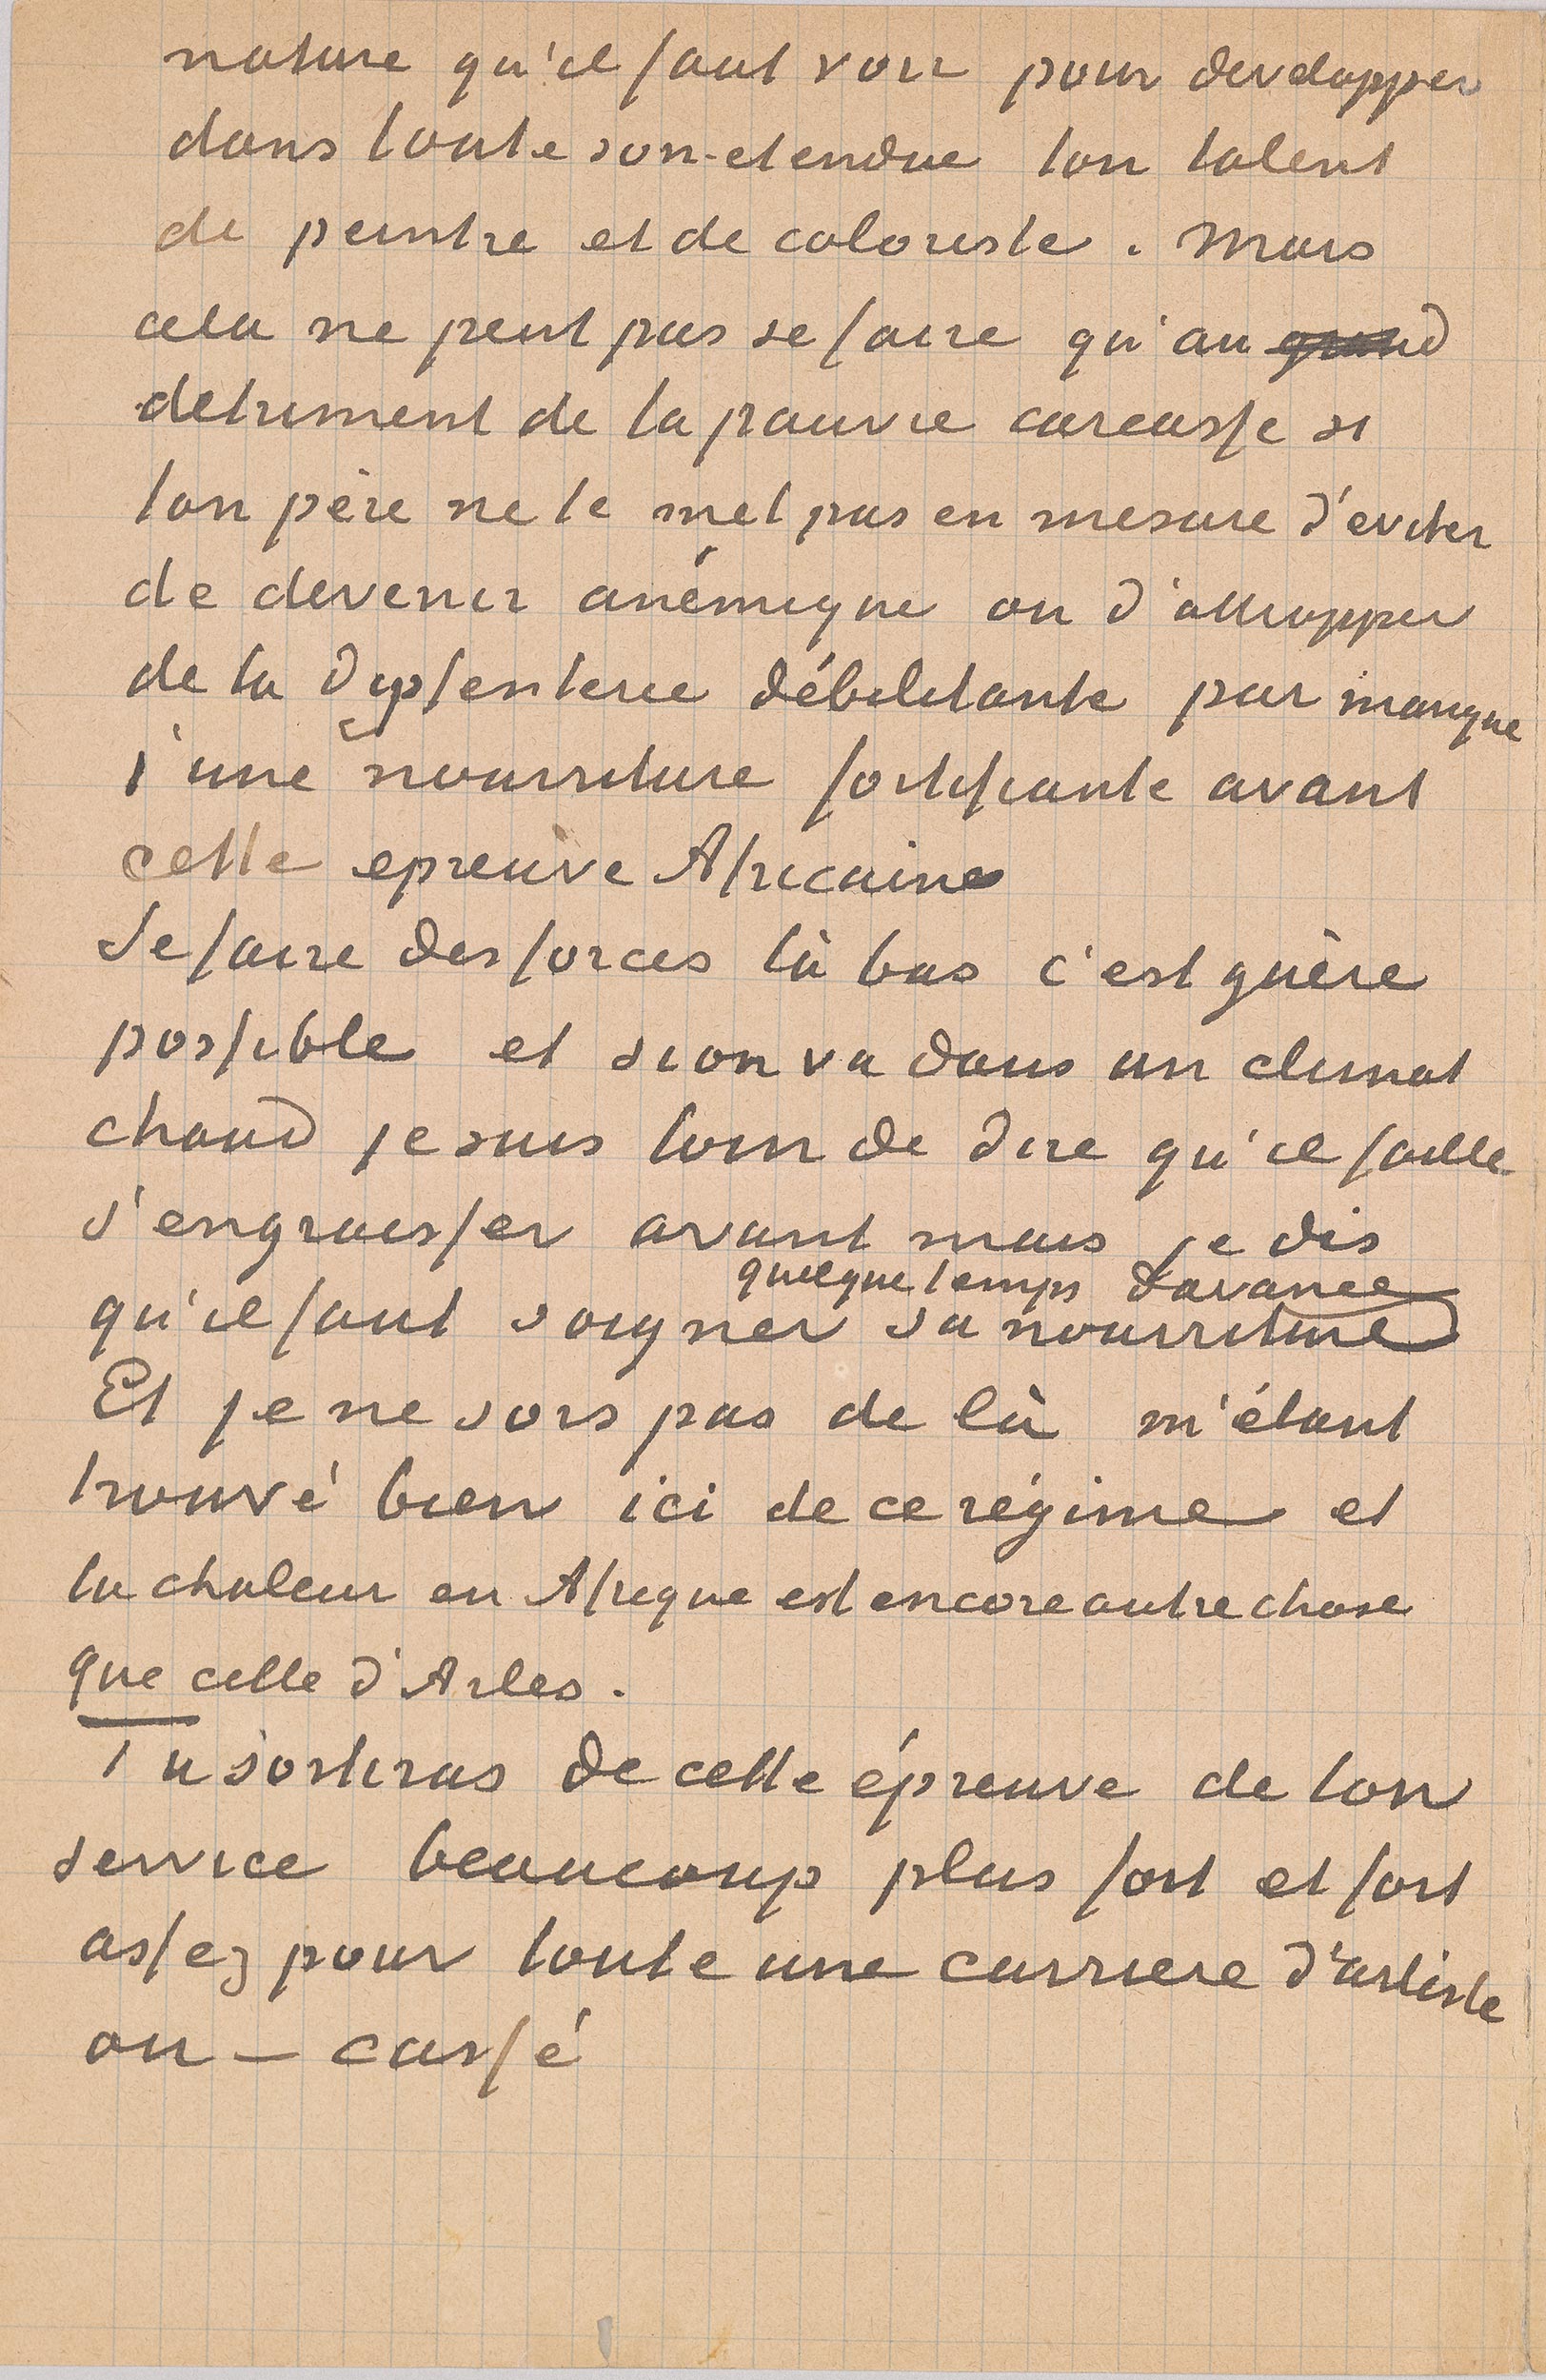 nature qu'il faut voir pour developper
dans toute son etendue ton talent
de peintre et de coloriste. Mais
cela ne peut pas se faire qu'au grand
detriment de ta pauvre carcasse si
ton père ne te met pas en mesure d'eviter
de devenir anémique ou d'attrapper
de la dyssenterie débilitante par manque
d'une nourriture fortifiante avant
cette epreuve Africaine
Se faire des forces là bas c'est guère
possible et si on va dans un climat
chaud je suis loin de dire qu'il faille
s'engraisser avant mais je dis
quelque temps d'avance
qu'il faut soigner sa nourriture
Et je ne sors pas de là m'étant
trouvé bien ici de ce régime et
la chaleur en Afrique est encore autre chose
que celle d'Arles.
Tu sortiras de cette épreuve de ton
service beaucoup plus fort et fort
assez pour toute une carriere d'artiste
ou — cassé